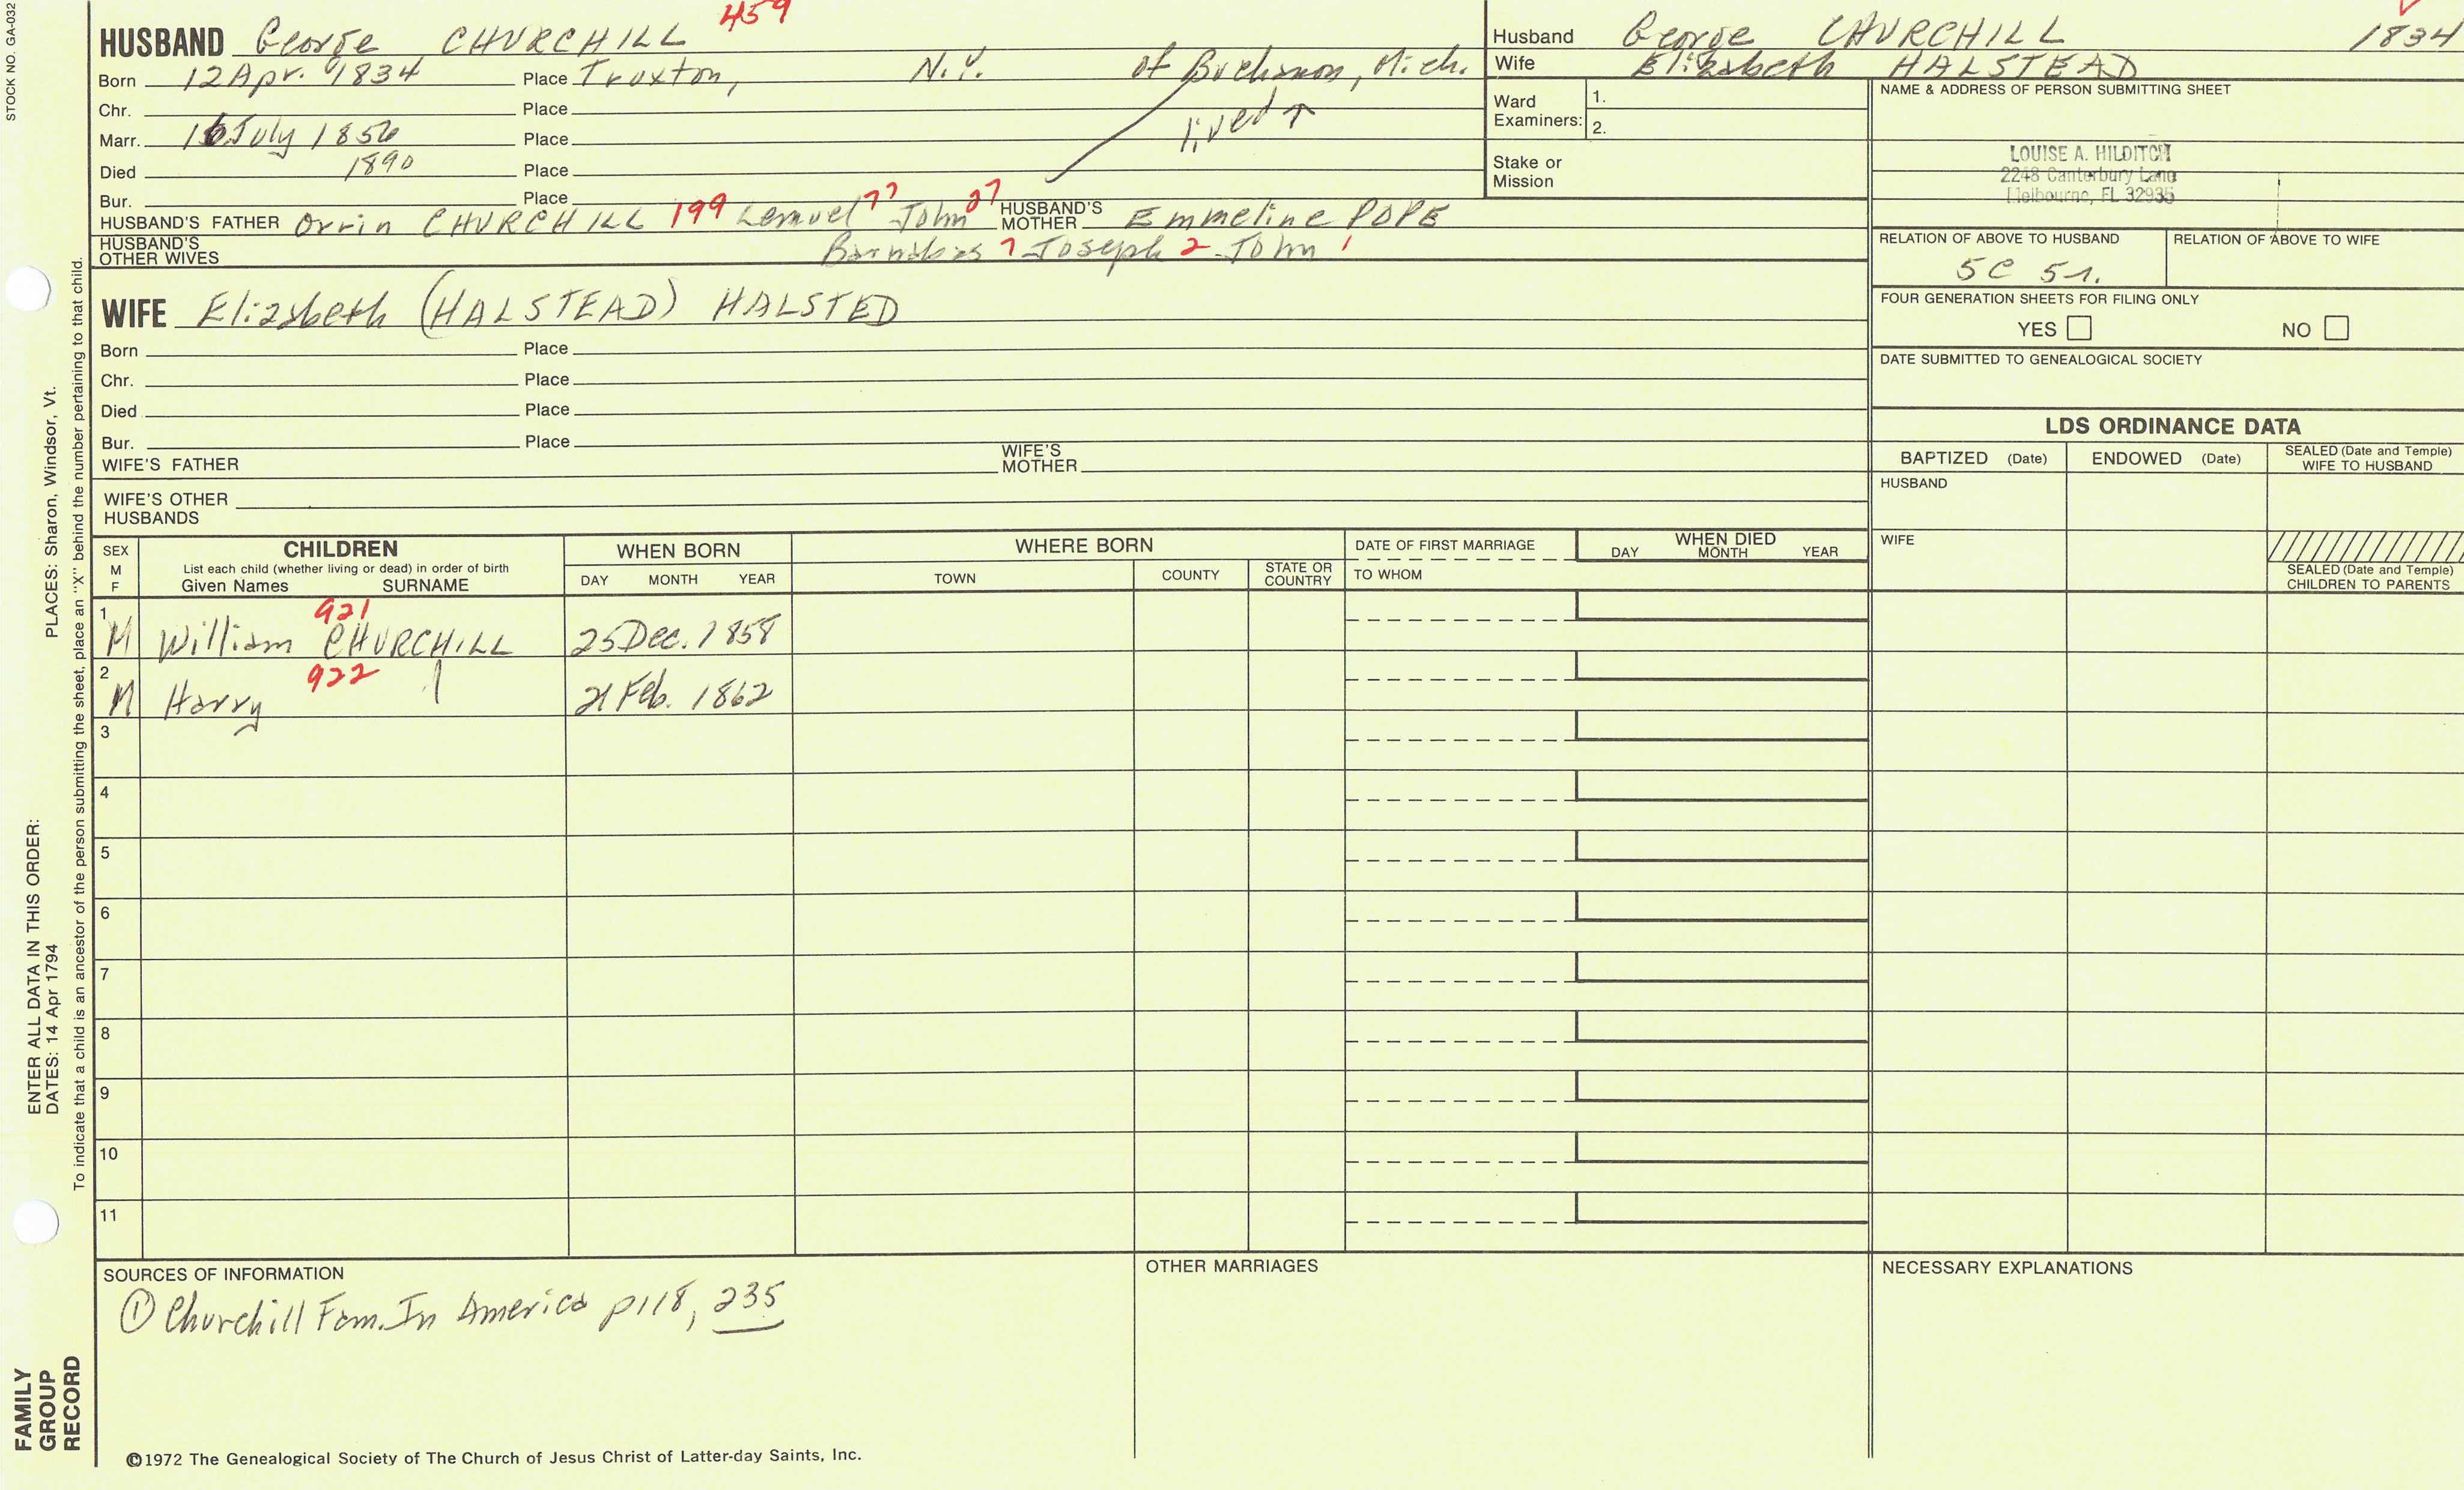 STOCK NO. GA-032
PLACES: Sharon, Windsor, Vt.
ENTER ALL DATA IN THIS ORDER:
DATES: 14 Apr 1794
To indicate that a child is an ancestor of the person submitting the sheet, place an "X" behind the number pertaining to that child.
FAMILY
GROUP
RECORD
459
HUSBAND George CHURCHILL
Born 12 Apr. 1834 Place Truxton, N.Y. of Buchanan, Mich.
Chr. Place lived ↑
Marr. 16 July 1856 Place
Died 1890 Place
Bur. Place
HUSBAND'S FATHER Orrin CHURCHILL 199 Lemuel 77 John 27 HUSBAND'S MOTHER Emmeline POPE
HUSBAND'S OTHER WIVES Barnabas 7 Joseph 2 John 1
WIFE Elizabeth (HALSTEAD) HALSTED
Born Place
Chr. Place
Died Place
Bur. Place
WIFE'S FATHER WIFE'S MOTHER
WIFE'S OTHER HUSBANDS
Husband George CHURCHILL 1834
Wife Elizabeth HALSTEAD
Ward Examiners: 1.
2.
Stake or Mission
NAME & ADDRESS OF PERSON SUBMITTING SHEET
LOUISE A. HILDITCH
2248 Canterbury Lane
Melbourne, FL 32935
RELATION OF ABOVE TO HUSBAND RELATION OF ABOVE TO WIFE
5C 5r.
FOUR GENERATION SHEETS FOR FILING ONLY
YES NO
DATE SUBMITTED TO GENEALOGICAL SOCIETY
LDS ORDINANCE DATA
BAPTIZED (Date) ENDOWED (Date) SEALED (Date and Temple) WIFE TO HUSBAND
HUSBAND
WIFE
SEALED (Date and Temple) CHILDREN TO PARENTS
SEX M F CHILDREN WHEN BORN WHERE BORN DATE OF FIRST MARRIAGE WHEN DIED
List each child (whether living or dead) in order of birth
Given Names SURNAME DAY MONTH YEAR TOWN COUNTY STATE OR COUNTRY TO WHOM DAY MONTH YEAR
921
1 M William CHURCHILL 25 Dec. 1858
922
2 M Harry 21 Feb. 1862
3
4
5
6
7
8
9
10
11
SOURCES OF INFORMATION
① Churchill Fam. In America p118, 235
OTHER MARRIAGES
NECESSARY EXPLANATIONS
©1972 The Genealogical Society of The Church of Jesus Christ of Latter-day Saints, Inc.